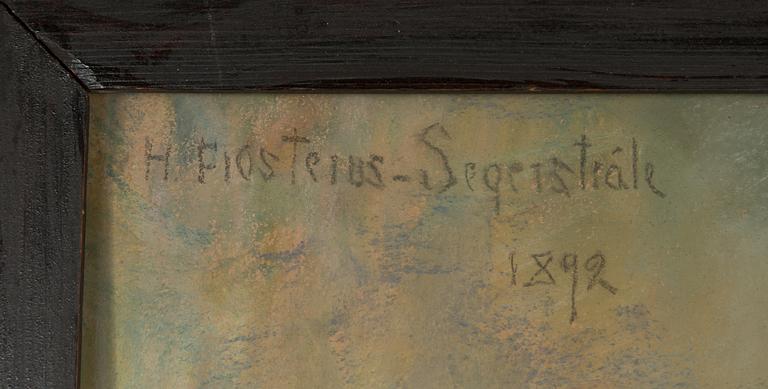 H. Flosterus-Segerstråle
1892